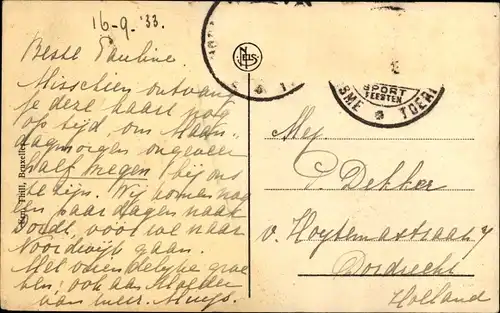 16-9.'33.
Beste Pauline.
Misschien ontvang
je deze kaart nog
op tijd, om Maan-
dagmorgen ongeveer
half negen bij ons
te zijn. Wij komen nog
een paar dagen naar
Dordt, vóór we naar
Noordwijk gaan.
Met vriendelijke groe
ten, ook aan Moeder
van meer. Nels
SPORT
FEESTEN
SME * TOERI
Mej
P. Dekker
v. Hoytemastraat 7
Dordrecht
Holland
Ern. Thill, Bruxelles